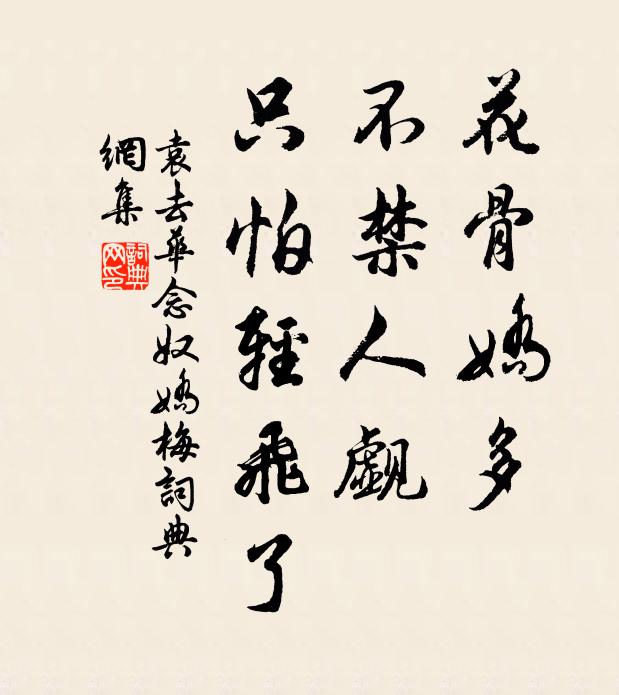 花骨嬌多
不禁人觑
只怕輕飛了
袁去華念奴嬌梅詞典
網集
詞典
网印